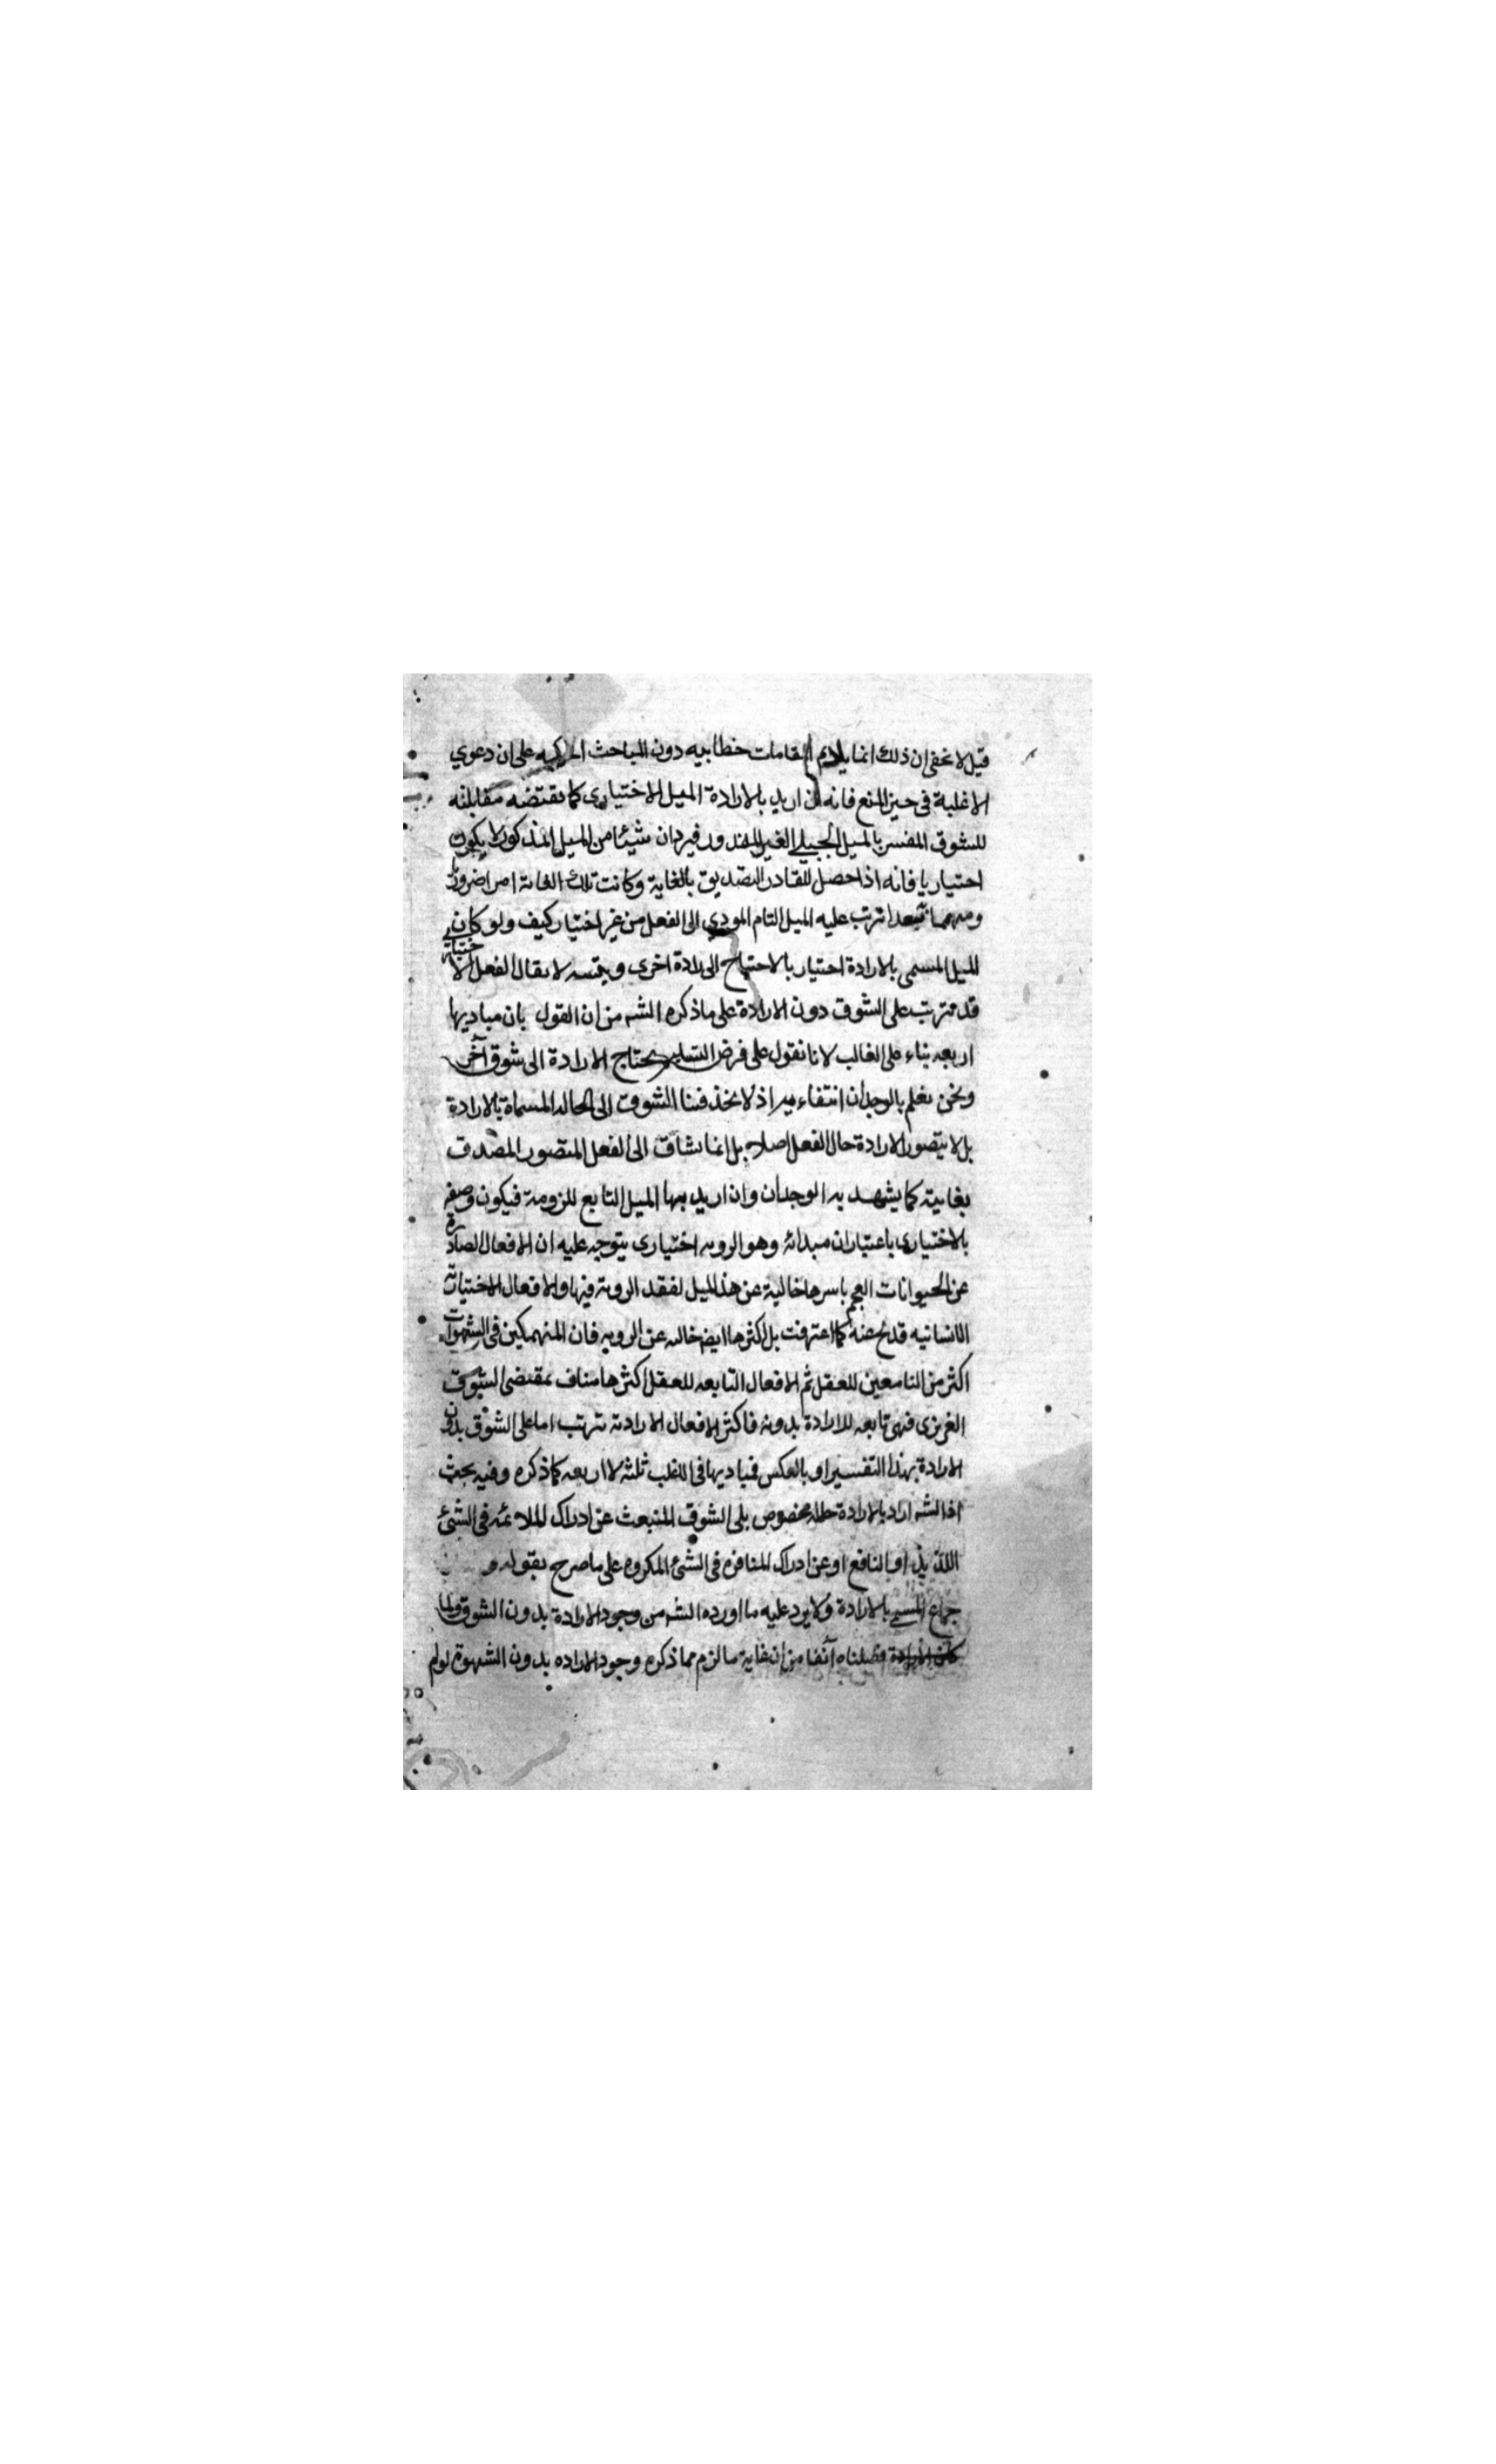 قيل لا يخفى ان ذلك انما يلايم المقامات خطابيه دون المباحث الحكميه على ان دعوي
الاغلبة فى حيز المنع فانه ان اريد بالارادة الميل الاختيارى كما يقتضه مقابلته
للشوق المفسر بالميل الجبلي الغير المقدور فيرد ان شيئا من الميل المذكور لا يكون
اختياريا فانه اذا حصل للقادر التصديق بالغاية وكانت تلك الغاية امرا ضروريا
ترتب عليه الميل التام المودي الى الفعل من غير اختيار كيف ولو كان
الميل المسمى بالارادة اختياريا لاحتاج الى ارادة اخرى لا يقال الفعل الاختياري
قد تترتب على الشوق دون الارادة على ما ذكره الشه من ان القول بان مباديها
اربعه بناء على الغالب لانا نقول على فرض التسليم يحتاج الارادة الى شوق آخر
ونحن نعلم بالوجدان انتفاء اذ لا نجد فينا الشوق الى الحاله المسماة بالارادة
بل لا يتصور الارادة حال الفعل اصلا بل انما نشاق الى الفعل المتصور المصدق
بغايته كما يشهد به الوجدان وان اريد بها الميل التابع للروية فيكون وصفه
بالاختيارى باعتبار ان مبدائه وهو الرويه اختيارى يتوجه عليه ان الافعال الصادرة
عن الحيوانات العجم باسرها خالية عن هذا الميل لفقد الروية فيها والافعال الاختيارية
الانسانيه قد يخ عنه كما اعترفت بل اكثرها ايضا خاليه عن الرويه فان المنهمكين فى الشهوات
اكثر من التابعين للعقل ثم الافعال التابعه للعقل اكثرها مناف بمقتضى الشوق
الغريزى فهى تابعه للارادة بدونه فاكثر الافعال الارادية تترتب اما على الشوق بدون
الارادة بهذا التفسير او بالعكس فمباديها فى الاغلب ثلثه لا اربعه كما ذكره وفيه بحث
اذا الشه اراد بالارادة حاله مخصوص بلى الشوق المنبعث عن ادراك الملائمه فى الشئ
اللذيذ او النافع او عن ادراك المنافره فى الشئ المكروه على ما صرح بقوله و
جماع المسمى بالارادة ولا يرد عليه ما اورده الشه من وجود الارادة بدون الشوق ولما
فصلناه آنفا من ان غاية ما لزم مما ذكره وجود الاراده بدون الشهوة لو لم